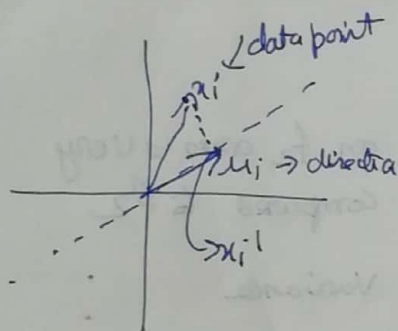 data point
xi
ui → direction
xi'